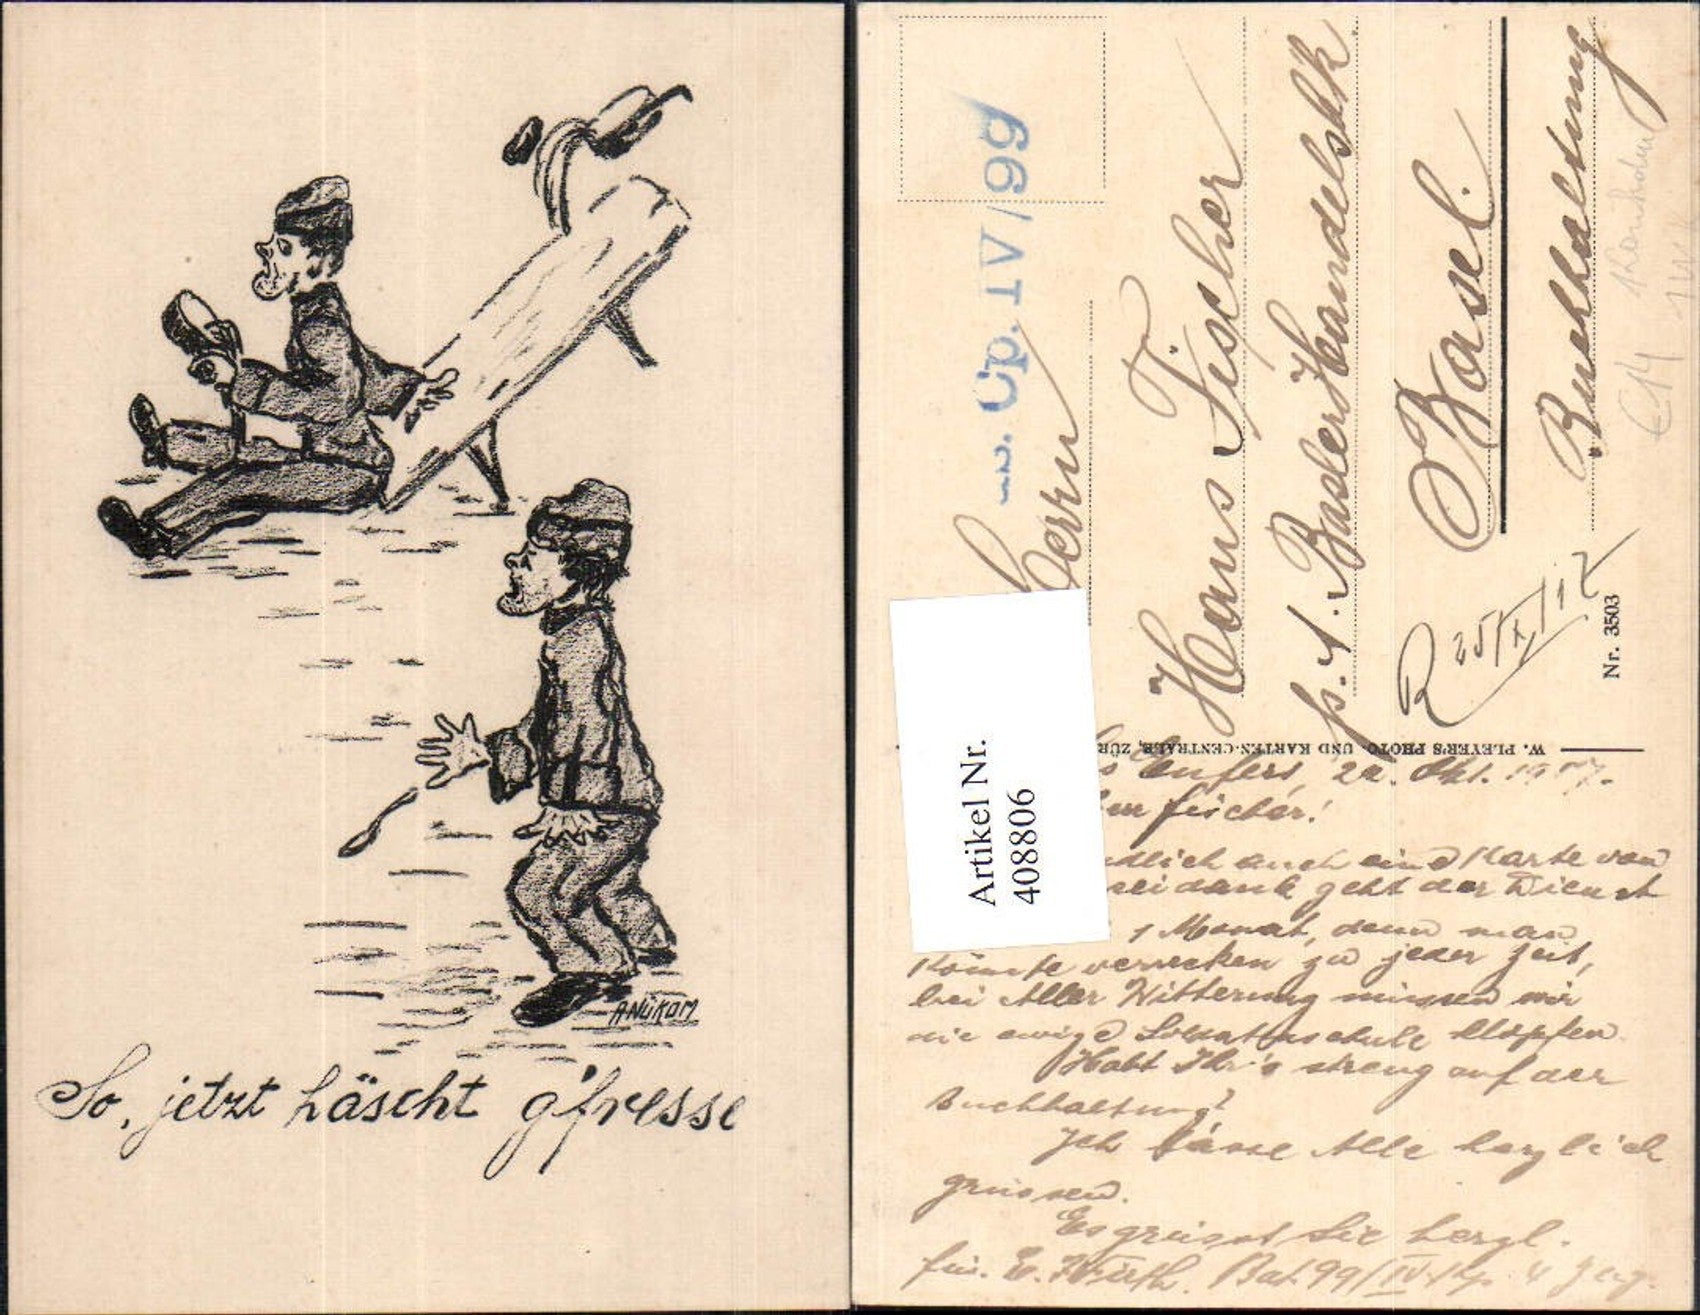 ANÜKOM
So, jetzt häscht g'fresse
Cp. IV/99
Herrn
Hans Fischer
p. A. Basler Handelsbk
Basel.
Buchhaltung
R 25/X/17
Nr. 3503
W. PLEYER'S PHOTO- UND KARTEN-CENTRALE, ZÜR
Artikel Nr.
408806
€ 14
Enfers, 22. Okt. 1917.
Fischer!
endlich auch eine Karte von
geht der Dienst
1 Monat, denn man
könnte verrecken zu jeder Zeit,
bei Aller Witterung müssen wir
die ewige Soldatenschule klopfen.
Habt Ihr's streng auf der
Buchhaltung?
Ich lasse Alle herzlich
grüssen.
Es grüsst Sie herzl.
füs. E. Bat. 99/IV Kp. 4 Zug.